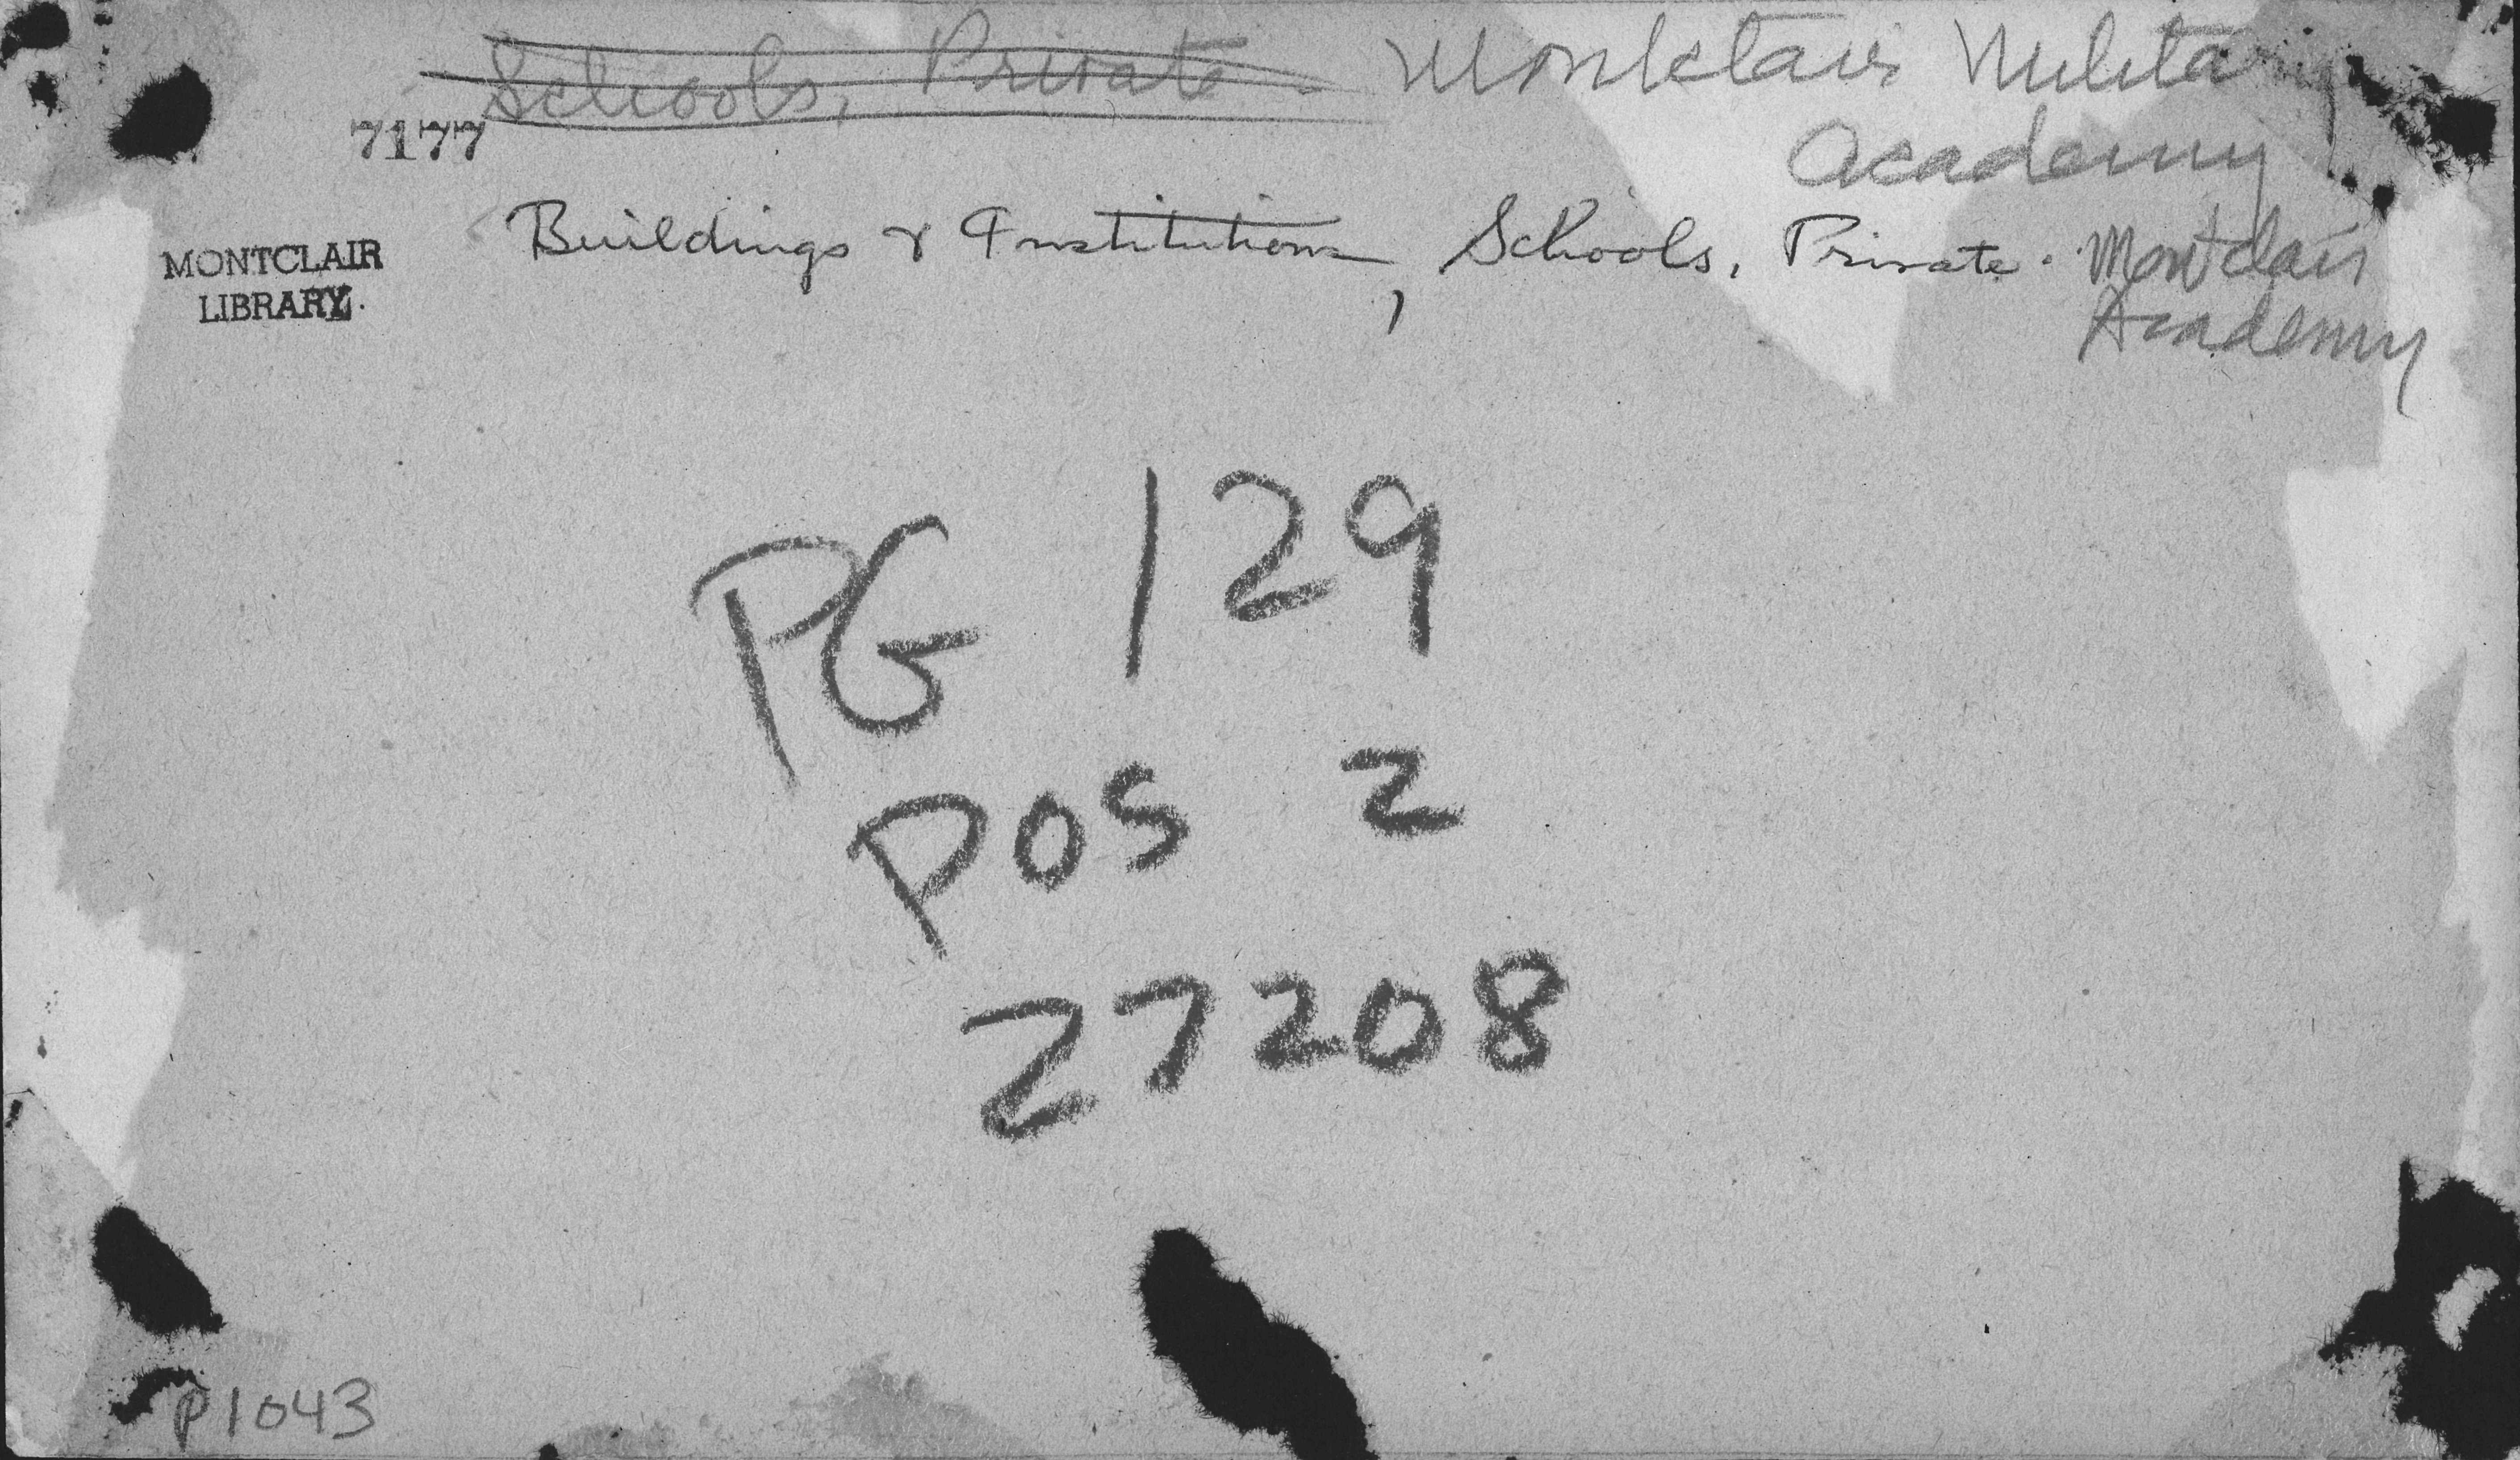 Schools, Private - Montclair Military
Academy
7177
MONTCLAIR
LIBRARY.
Buildings & Institutions, Schools, Private. Montclair
Academy
PG 129
POS 2
27208
P1043